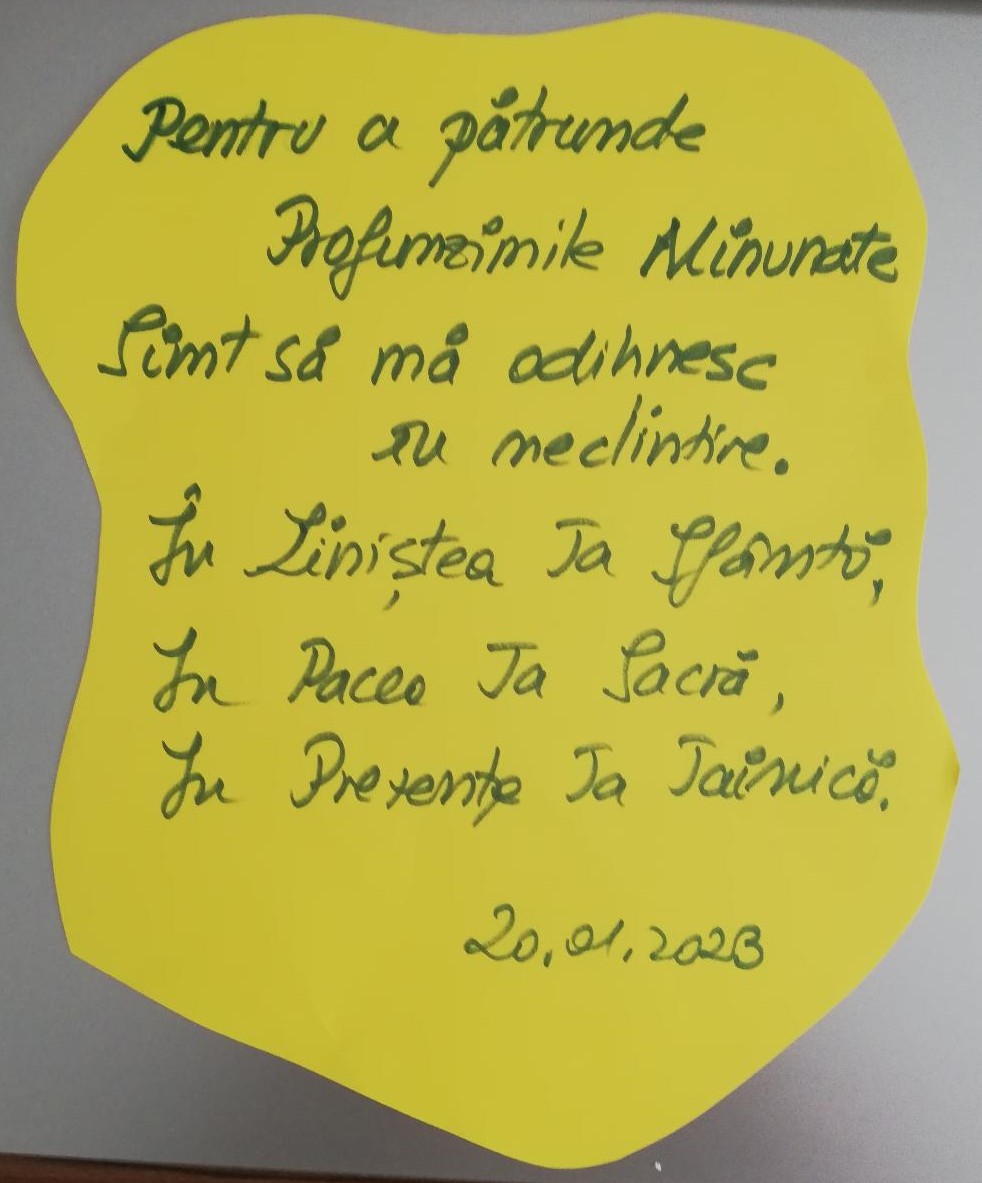 Pentru a pătrunde
Profunzimile Minunate
Simt să mă odihnesc
cu neclintire.
În Liniștea Ta Sfântă,
În Pacea Ta Sacră,
În Prezența Ta Tainică.
20.01.2023